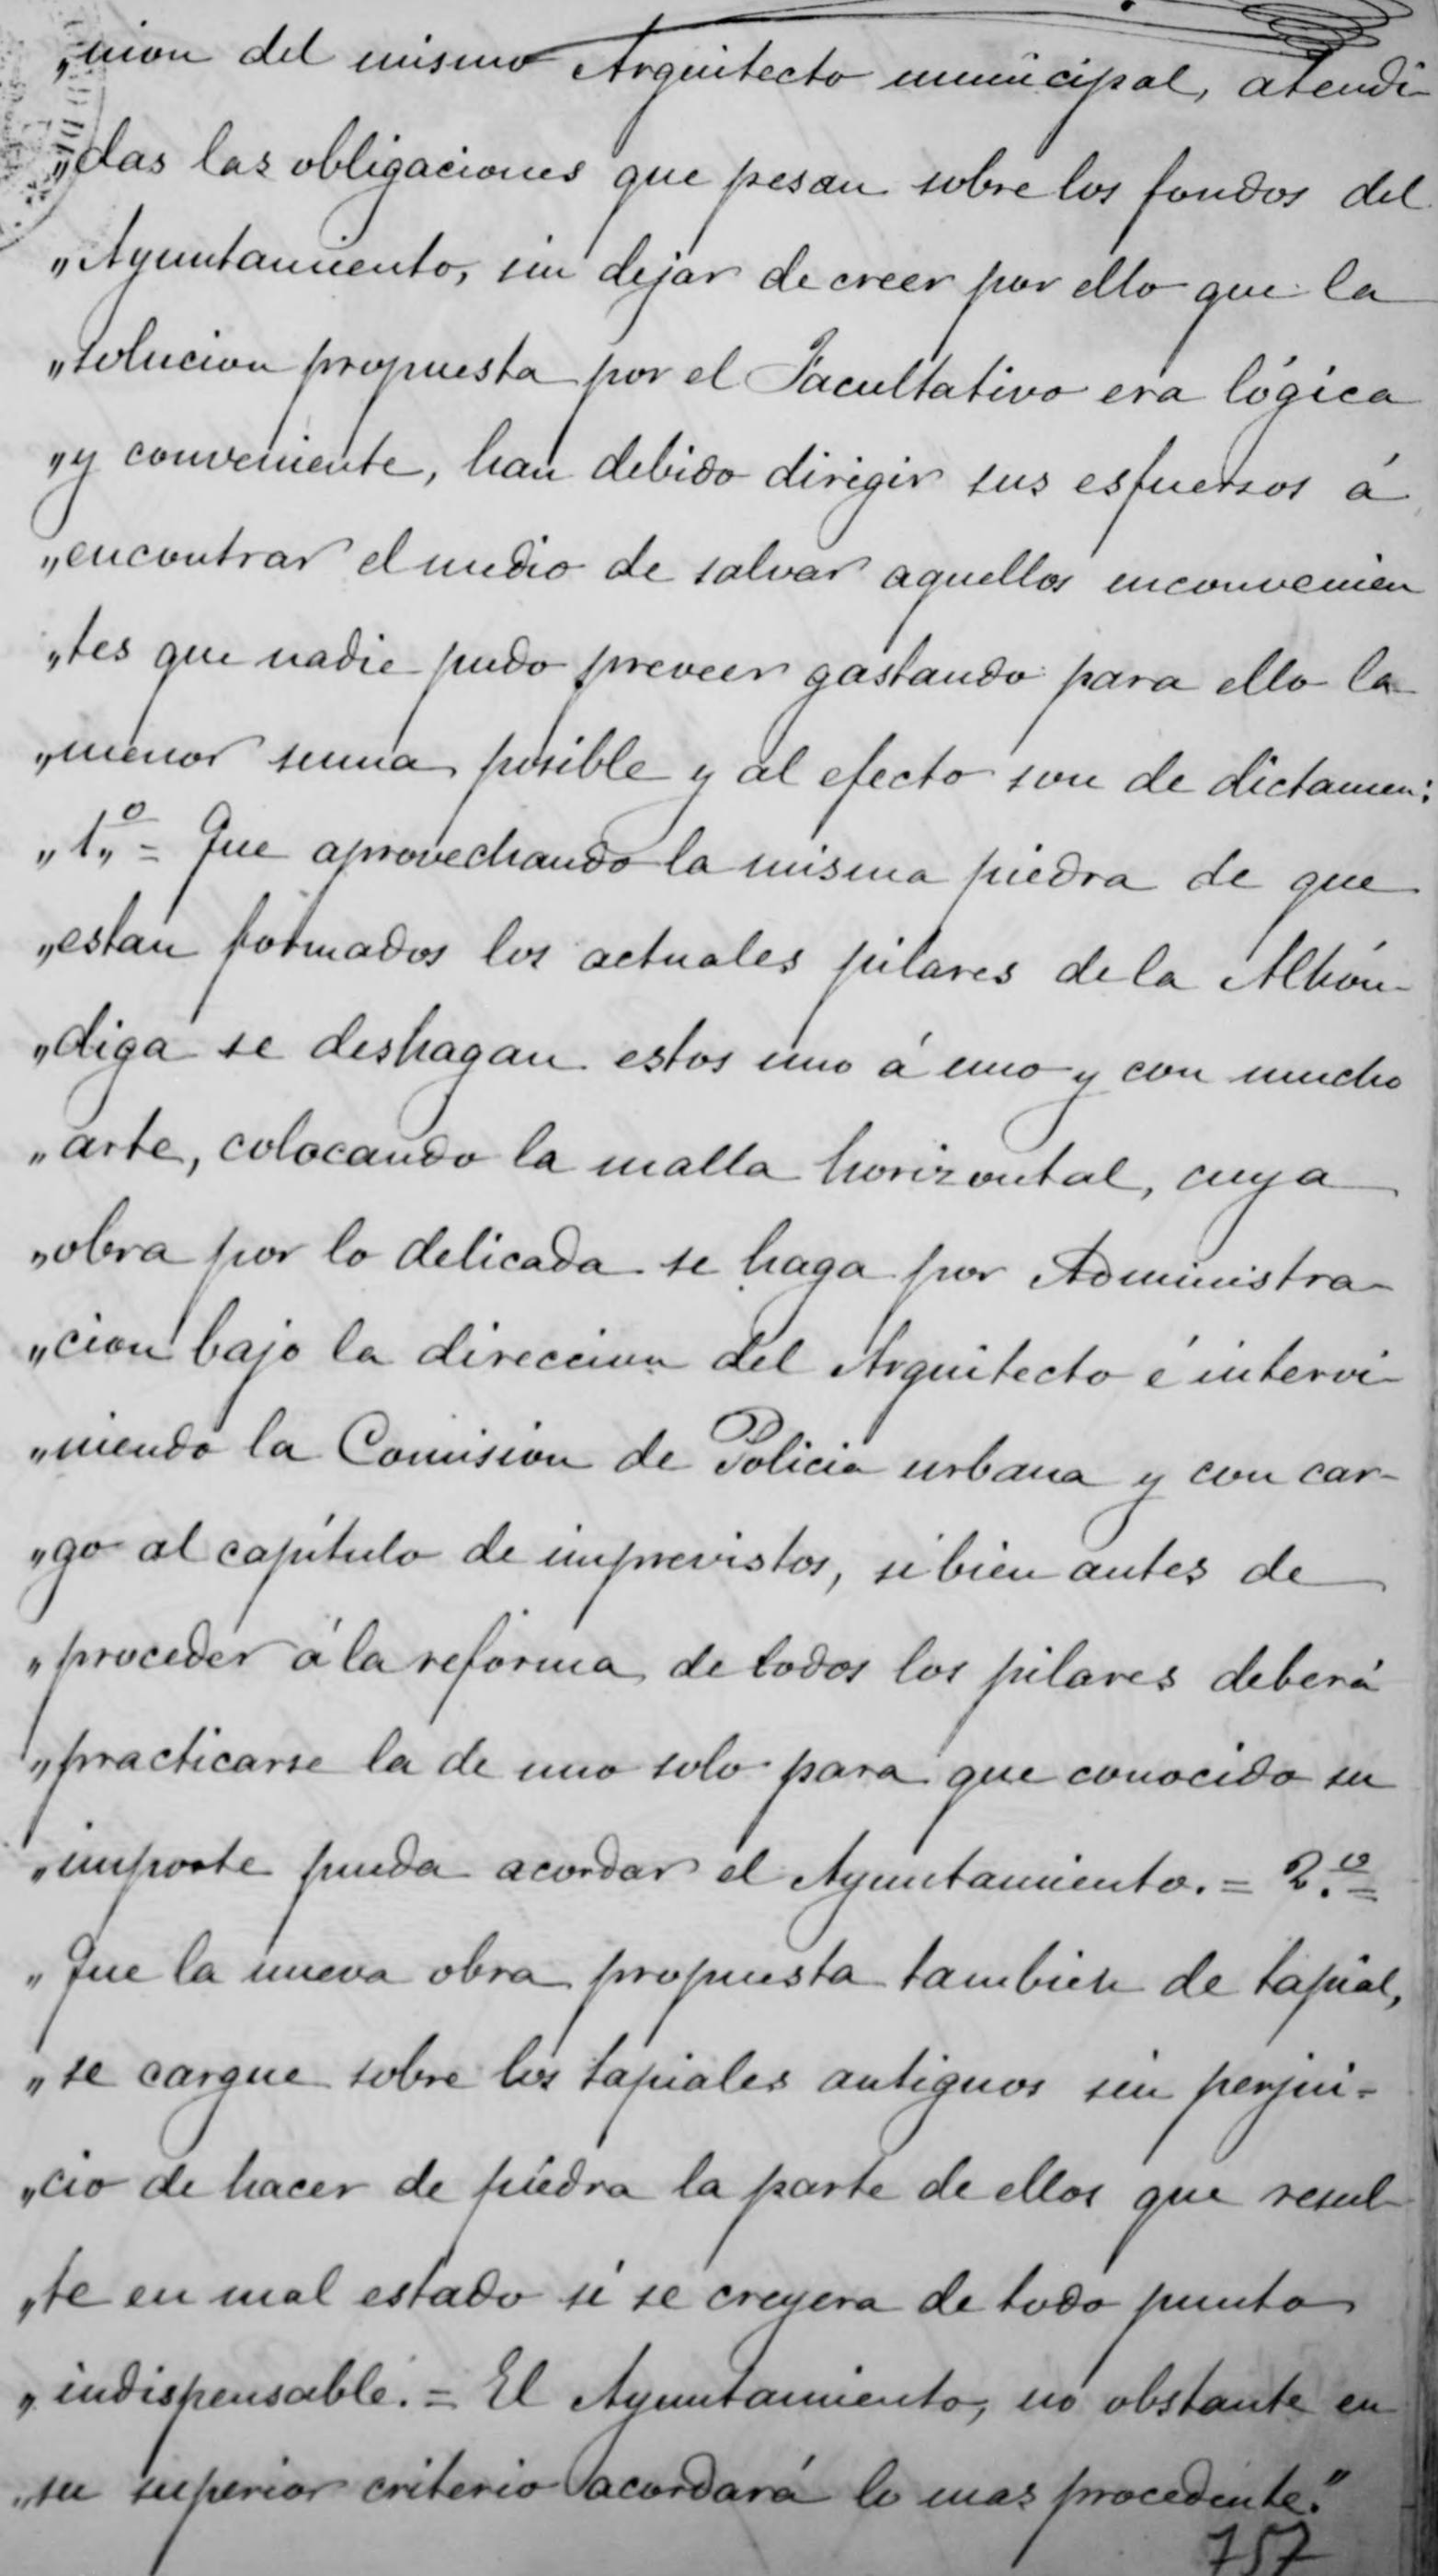 „nion del mismo Arquitecto municipal, atendi-
„das las obligaciones que pesan sobre los fondos del
„Ayuntamiento, sin dejar de creer por ello que la
„solucion propuesta por el Facultativo era lógica
„y conveniente, han debido dirigir sus esfuersos á
„encontrar el medio de salvar aquellos inconvenien
„tes que nadie pudo preveer gastando para ello la
„menor suma posible y al efecto son de dictamen:
„1º = Que aprovechando la misma piedra de que
„estan formados los actuales pilares de la Alhón-
„diga se deshagan estos uno á uno y con mucho
„arte, colocando la malla horizontal, cuya
„obra por lo delicada se haga por Administra-
„cion bajo la direccion del Arquitecto é intervi-
„niendo la Comision de Policia urbana y con car-
„go al capítulo de imprevistos, si bien antes de
„proceder á la reforma de todos los pilares deberá
„practicarse la de uno solo para que conocido su
„importe pueda acordar el Ayuntamiento. = 2.º =
„Que la nueva obra propuesta tambien de tapial,
„se cargue sobre los tapiales antiguos sin perjui=
„cio de hacer de piedra la parte de ellos que resul-
„te en mal estado si se creyera de todo punto
„indispensable. = El Ayuntamiento, no obstante en
„su superior criterio acordará lo mas procedente."
757